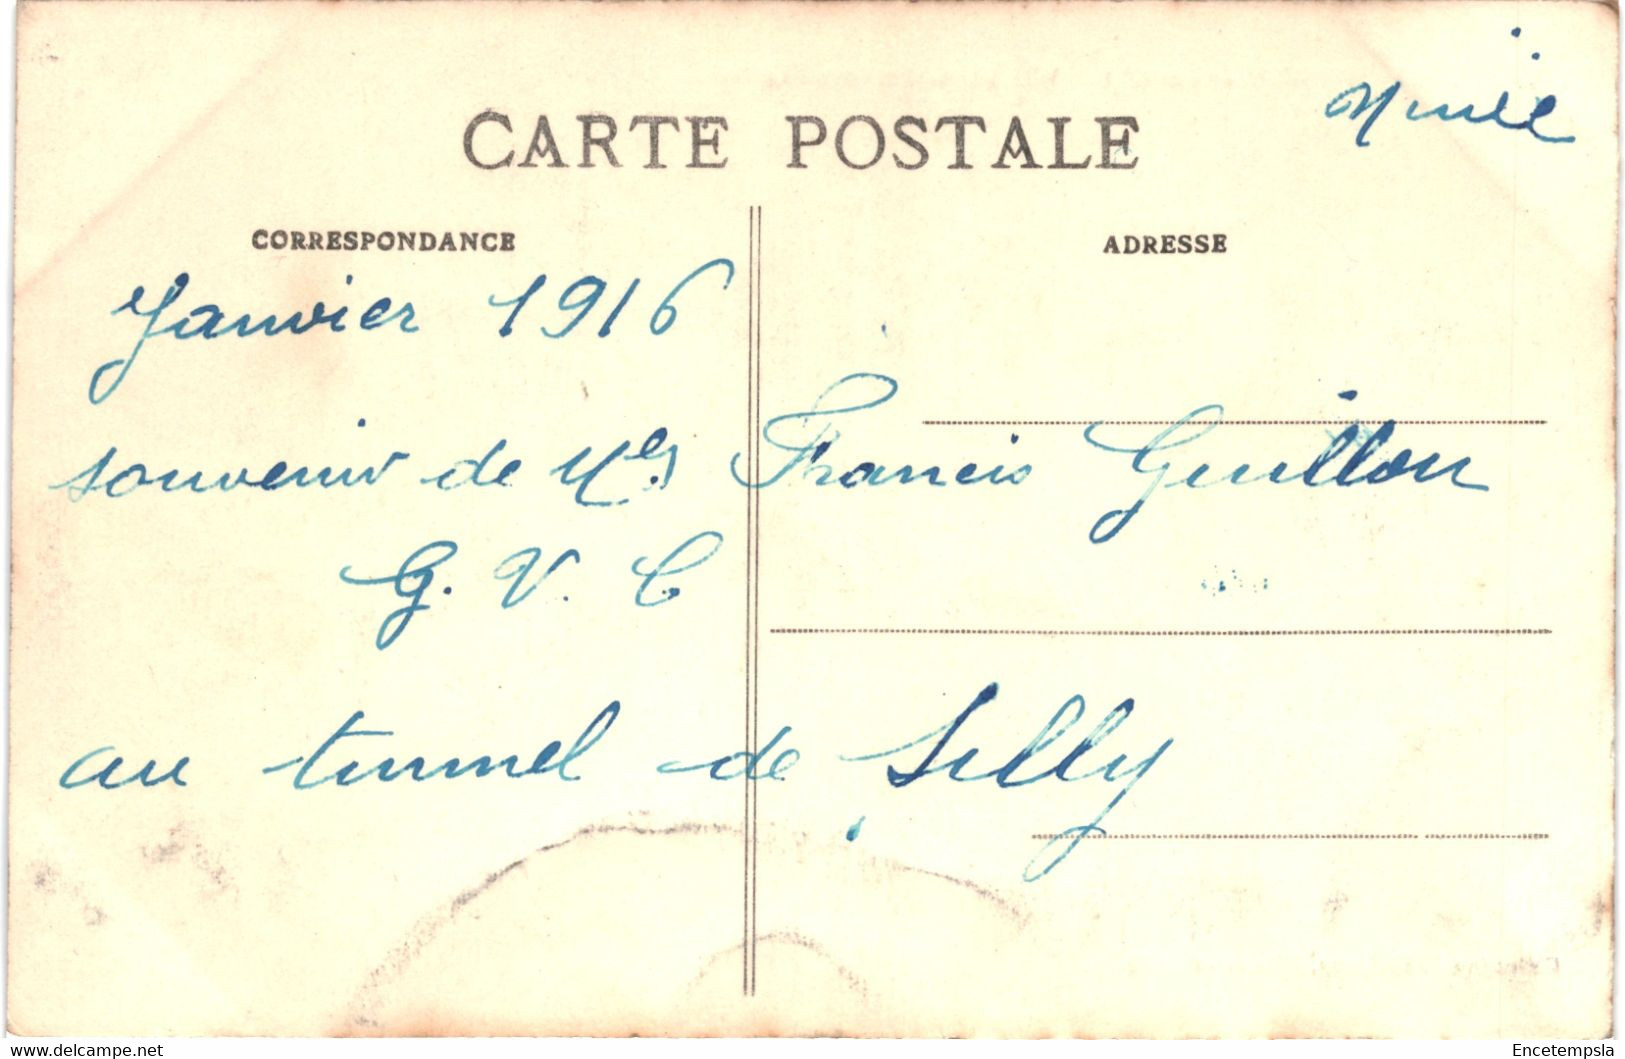 CARTE POSTALE
CORRESPONDANCE
ADRESSE
Janvier 1916
souvenir de Francis Guillon
G. V. C
au tunnel de Silly
Encetempsla